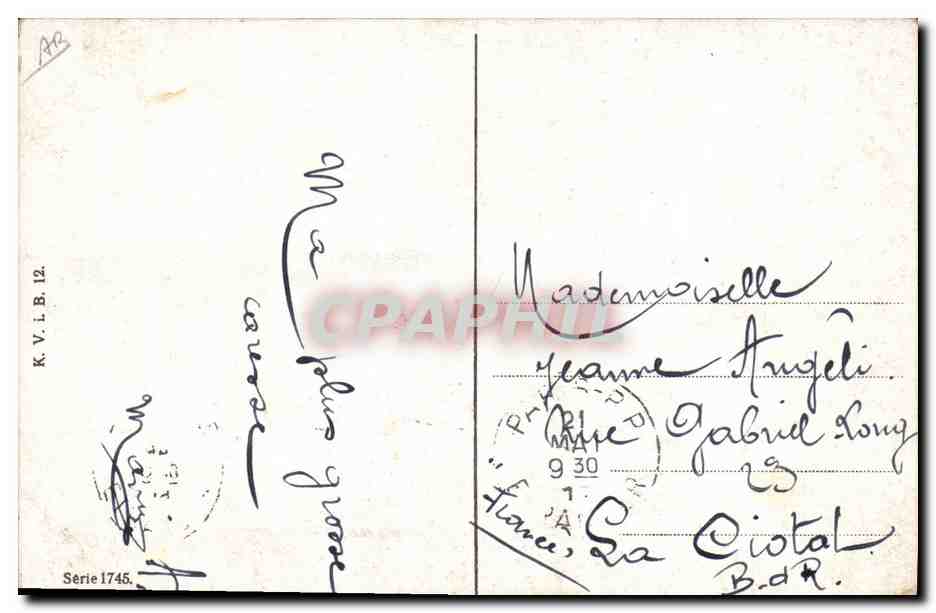 AB
K. V. i. B. 12.
Ma plus grosse
caresse
Série 1745.
CPAPHIL
Mademoiselle
Jeanne Angêli.
Rue Gabriel Long
29
La Ciotat.
B.dR.
(France)
21
MAI
9 30